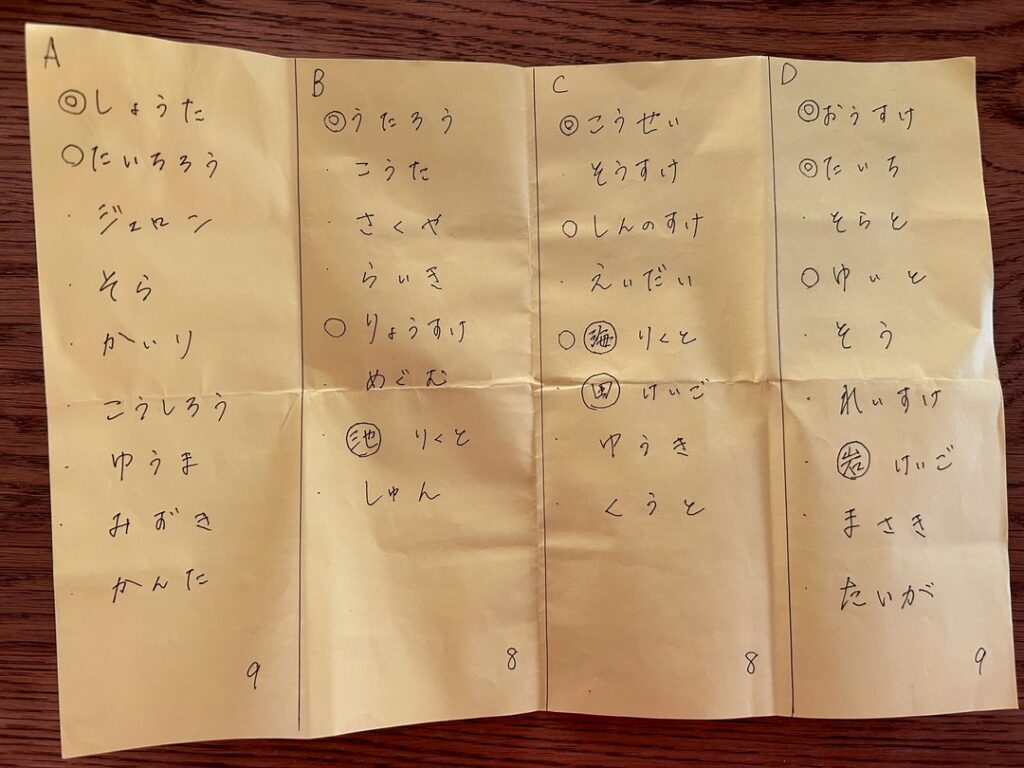 A
◎しょうた
○たいちろう
・ジェロン
・そら
・かいり
・こうしろう
・ゆうま
・みずき
・かんた
9
B
◎うたろう
・こうた
・さくや
・らいき
○りょうすけ
・めぐむ
・㊀池 りくと
・しゅん
8
C
◎こうせい
・そうすけ
○しんのすけ
・えいだい
○海 りくと
・田 けいご
・ゆうき
・くうと
8
D
◎おうすけ
◎たいち
・そらと
○ゆいと
・そう
・れいすけ
・岩 けいご
・まさき
・たいが
9